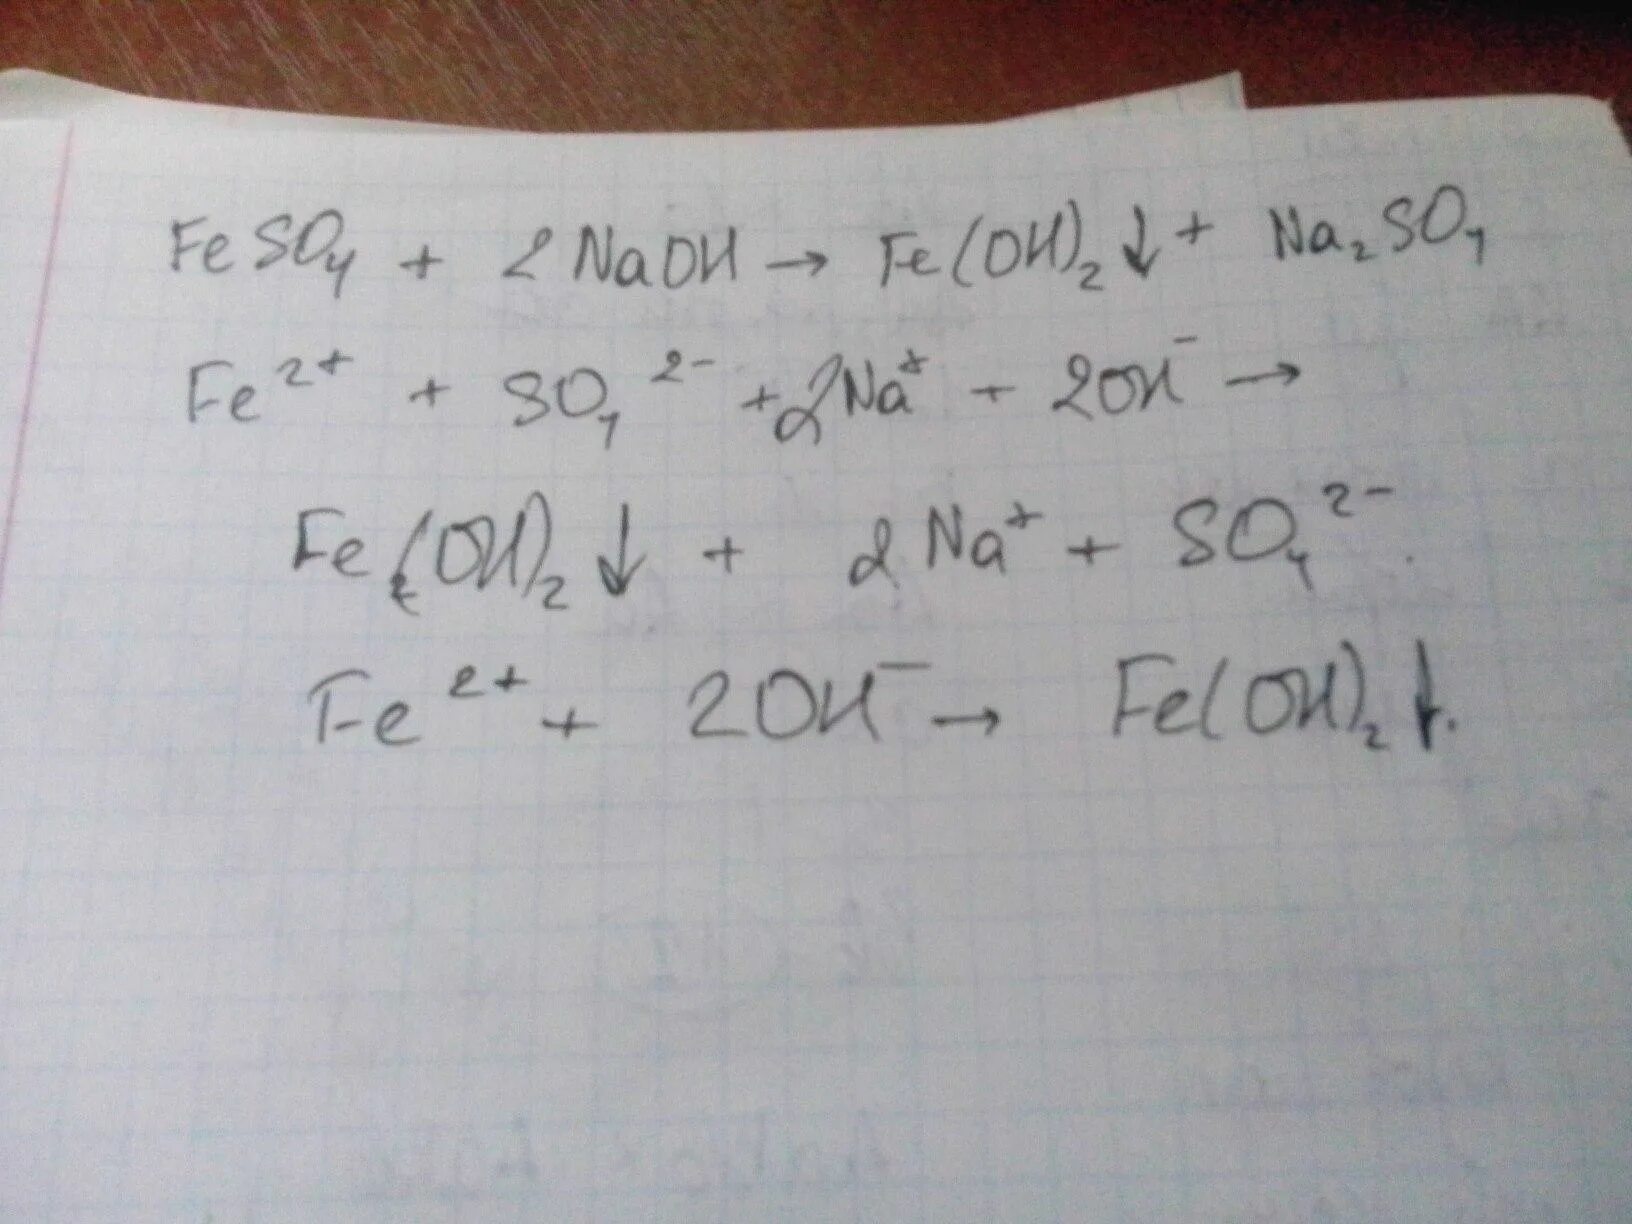 FeSO₄ + 2NaOH → Fe(OH)₂↓ + Na₂SO₄
Fe²⁺ + SO₄²⁻ + 2Na⁺ + 2OH⁻ →
Fe(OH)₂↓ + 2Na⁺ + SO₄²⁻.
Fe²⁺ + 2OH⁻ → Fe(OH)₂↓.